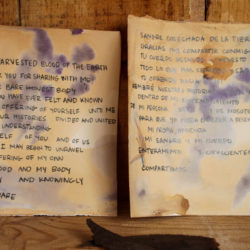 ARVESTED BLOOD OF THE EARTH
YOU FOR SHARING WITH ME
BARE HONEST BODY
YOU HAVE EVER FELT AND KNOWN
OFFERING OF YOURSELF UNTO ME
OUR HISTORIES DIVIDED AND UNITED
UNDERSTANDING
ELF OF YOU AND OF US
I MAY BEGIN TO UNRAVEL
FERING OF MY OWN
OOD AND MY BODY
AND KNOWINGLY
HARE
SANGRE COSECHADA DE LA TIER
GRACIAS POR COMPARTIR CONMIG
TU CUERPO DESNUDO HONESTO
TODO LO QUE HAS
TU OFRENDA
NUESTRA HISTORIA
DENTRO DE MI ENTENDIMIENTO
DE MI PERSONA
PARA QUE YO PUEDA EMPEZAR A
MI PROPIA OFRENDA
MI SANGRE Y MI CUERPO
ENTERAMENTE Y
COMPARTIMOS